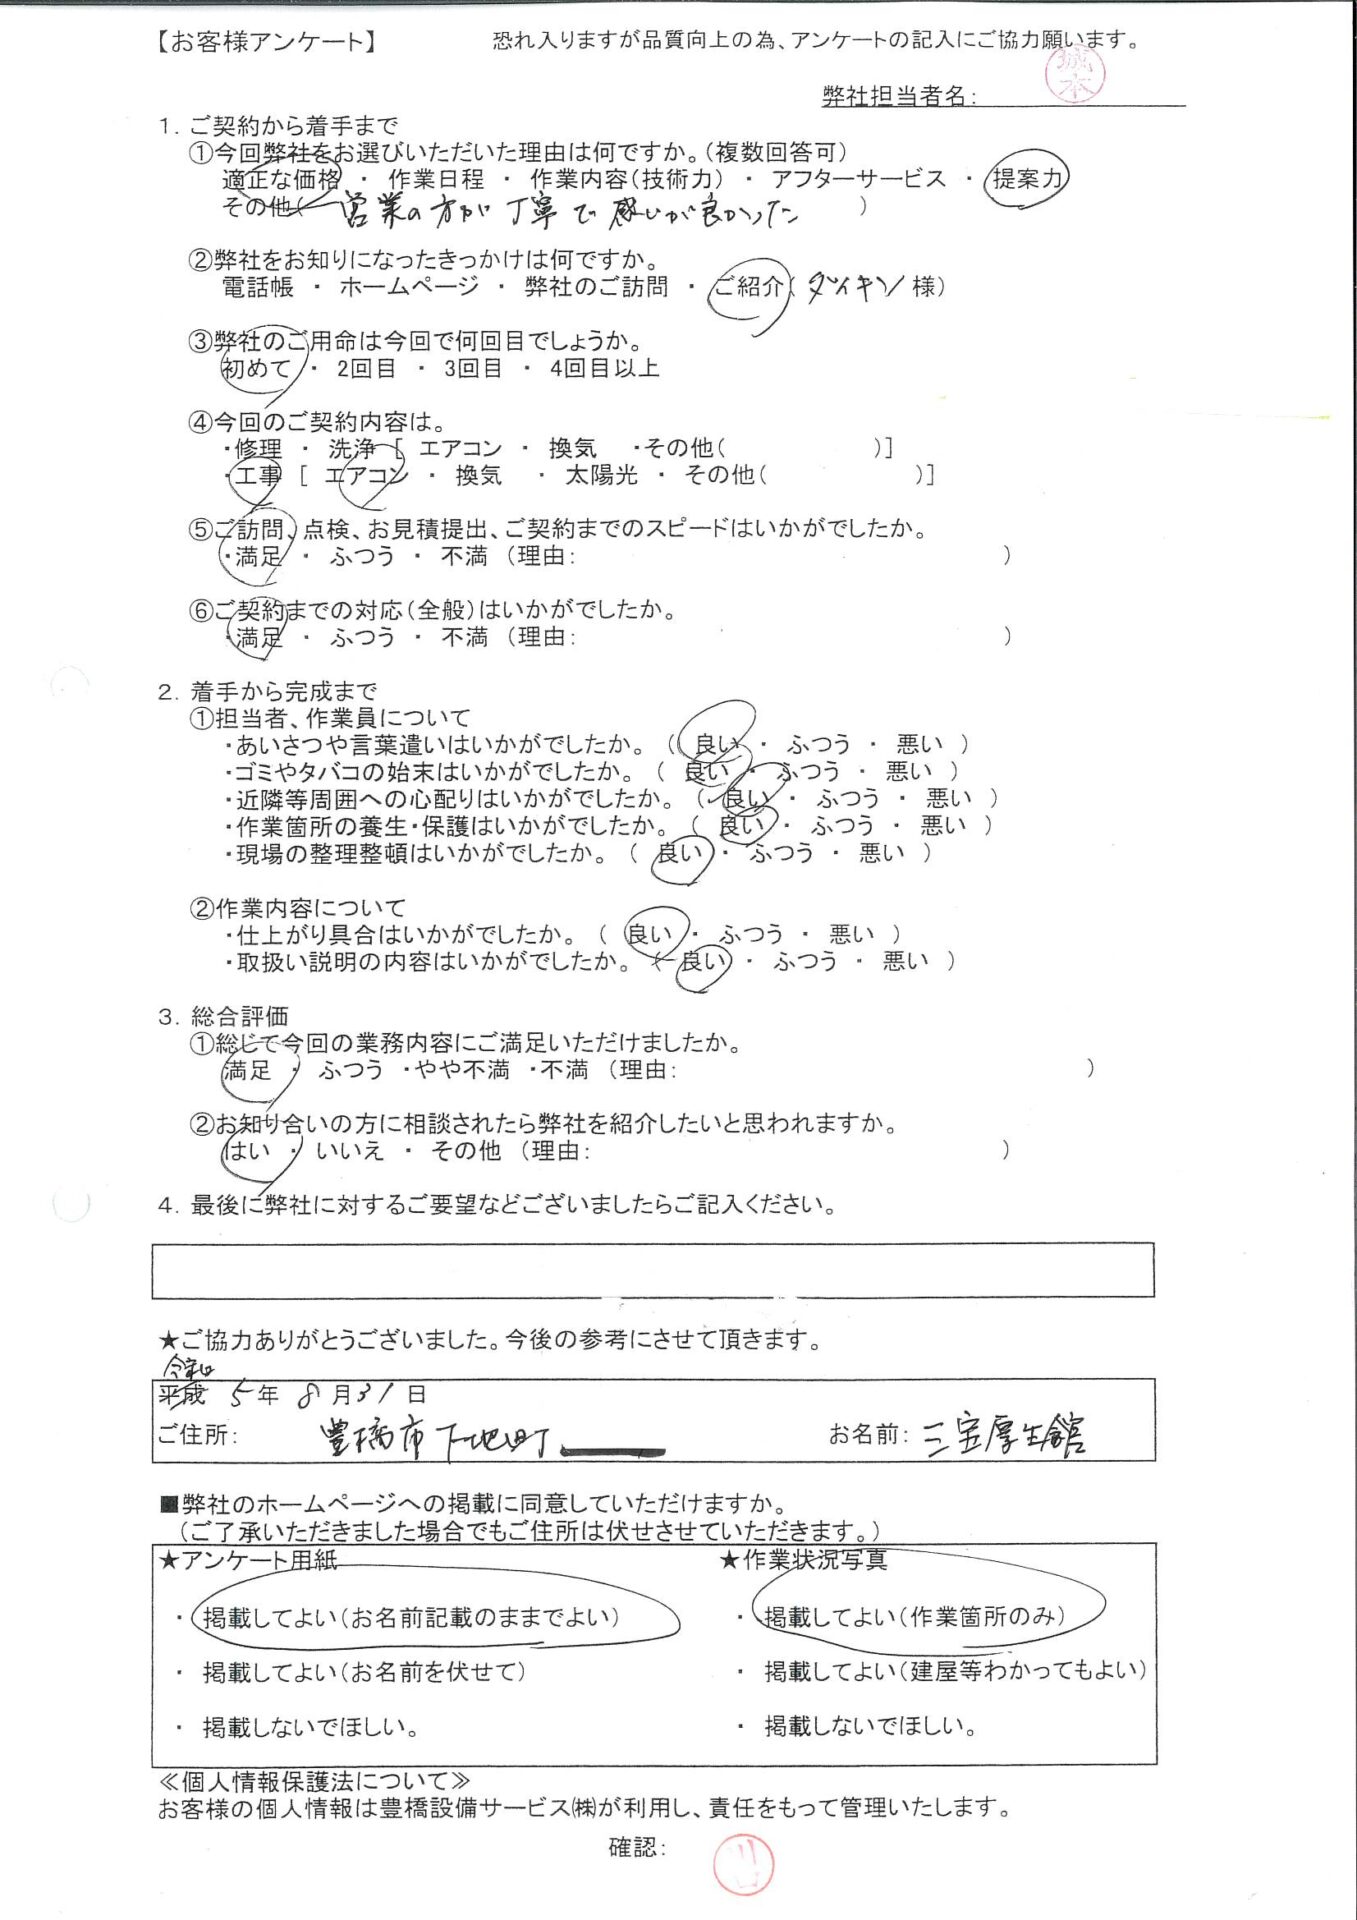 【お客様アンケート】 恐れ入りますが品質向上の為、アンケートの記入にご協力願います。
弊社担当者名: 城本
1. ご契約から着手まで
①今回弊社をお選びいただいた理由は何ですか。(複数回答可)
適正な価格 ・ 作業日程 ・ 作業内容(技術力) ・ アフターサービス ・ 提案力
その他( 営業の方が丁寧で感じが良かった )
②弊社をお知りになったきっかけは何ですか。
電話帳 ・ ホームページ ・ 弊社のご訪問 ・ ご紹介( ダイキン 様)
③弊社のご用命は今回で何回目でしょうか。
初めて ・ 2回目 ・ 3回目 ・ 4回目以上
④今回のご契約内容は。
・修理 ・ 洗浄 [ エアコン ・ 換気 ・その他( )]
・工事 [ エアコン ・ 換気 ・ 太陽光 ・ その他( )]
⑤ご訪問、点検、お見積提出、ご契約までのスピードはいかがでしたか。
・満足 ・ ふつう ・ 不満 (理由: )
⑥ご契約までの対応(全般)はいかがでしたか。
・満足 ・ ふつう ・ 不満 (理由: )
2. 着手から完成まで
①担当者、作業員について
・あいさつや言葉遣いはいかがでしたか。 ( 良い ・ ふつう ・ 悪い )
・ゴミやタバコの始末はいかがでしたか。 ( 良い ・ ふつう ・ 悪い )
・近隣等周囲への心配りはいかがでしたか。 ( 良い ・ ふつう ・ 悪い )
・作業箇所の養生・保護はいかがでしたか。 ( 良い ・ ふつう ・ 悪い )
・現場の整理整頓はいかがでしたか。 ( 良い ・ ふつう ・ 悪い )
②作業内容について
・仕上がり具合はいかがでしたか。 ( 良い ・ ふつう ・ 悪い )
・取扱い説明の内容はいかがでしたか。 ( 良い ・ ふつう ・ 悪い )
3. 総合評価
①総じて今回の業務内容にご満足いただけましたか。
満足 ・ ふつう ・やや不満 ・不満 (理由: )
②お知り合いの方に相談されたら弊社を紹介したいと思われますか。
はい ・ いいえ ・ その他 (理由: )
4. 最後に弊社に対するご要望などございましたらご記入ください。
★ご協力ありがとうございました。今後の参考にさせて頂きます。
令和
平成 5年 8月31日
ご住所: 豊橋市下地町 お名前: 三宝厚生館
■弊社のホームページへの掲載に同意していただけますか。
(ご了承いただきました場合でもご住所は伏せさせていただきます。)
★アンケート用紙 ★作業状況写真
・ 掲載してよい(お名前記載のままでよい) ・ 掲載してよい(作業箇所のみ)
・ 掲載してよい(お名前を伏せて) ・ 掲載してよい(建屋等わかってもよい)
・ 掲載しないでほしい。 ・ 掲載しないでほしい。
≪個人情報保護法について≫
お客様の個人情報は豊橋設備サービス㈱が利用し、責任をもって管理いたします。
確認: